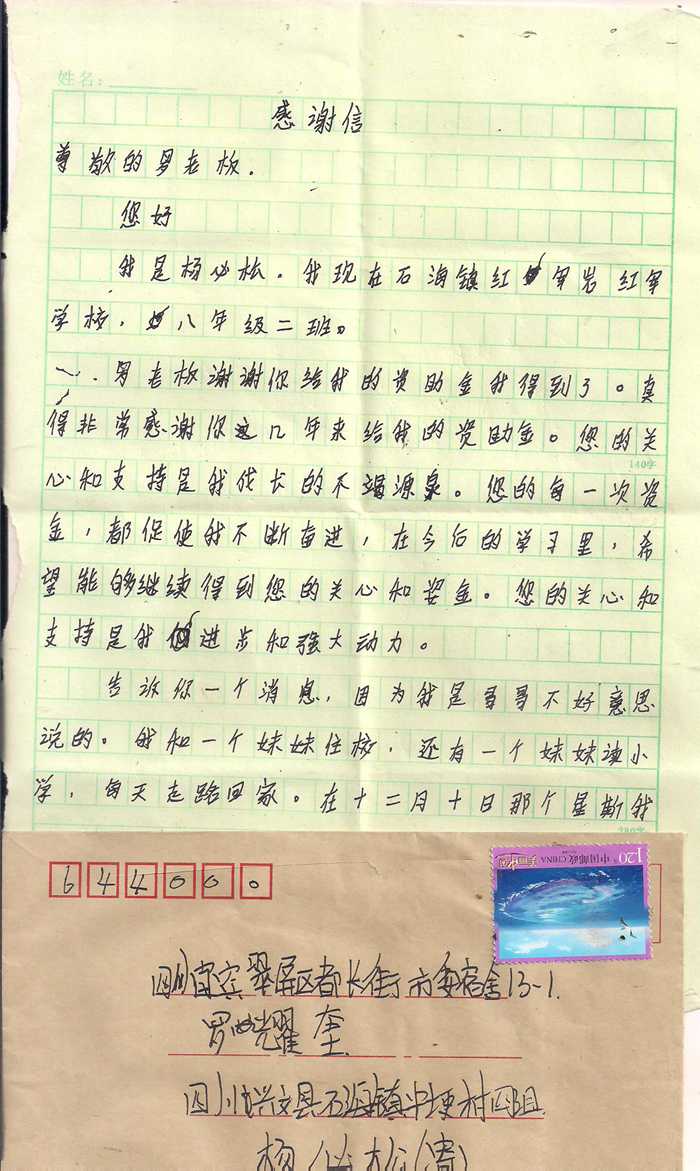 姓名:
感谢信
尊敬的罗老板.
您好
我是杨必松。我现在石海镇红军岩红军
学校,八年级二班。
一、罗老板谢谢你给我的资助金我得到了。真
得非常感谢你这几年来给我的资助金。您的关
140字
心和支持是我成长的不竭源泉。您的每一次资
金,都促使我不断奋进,在今后的学习里,希
望能够继续得到您的关心和奖金。您的关心和
支持是我进步和强大动力。
告诉你一个消息,因为我是哥哥不好意思
说的。我和一个妹妹住校,还有一个妹妹读小
学,每天走路回家。在十二月十日那个星斯我
280字
644000
1.20
中国邮政 CHINA
四川宜宾翠屏区都长街市委宿舍13-1.
罗 耀奎
四川兴文县石海镇 埂村四组
杨必松(寄)